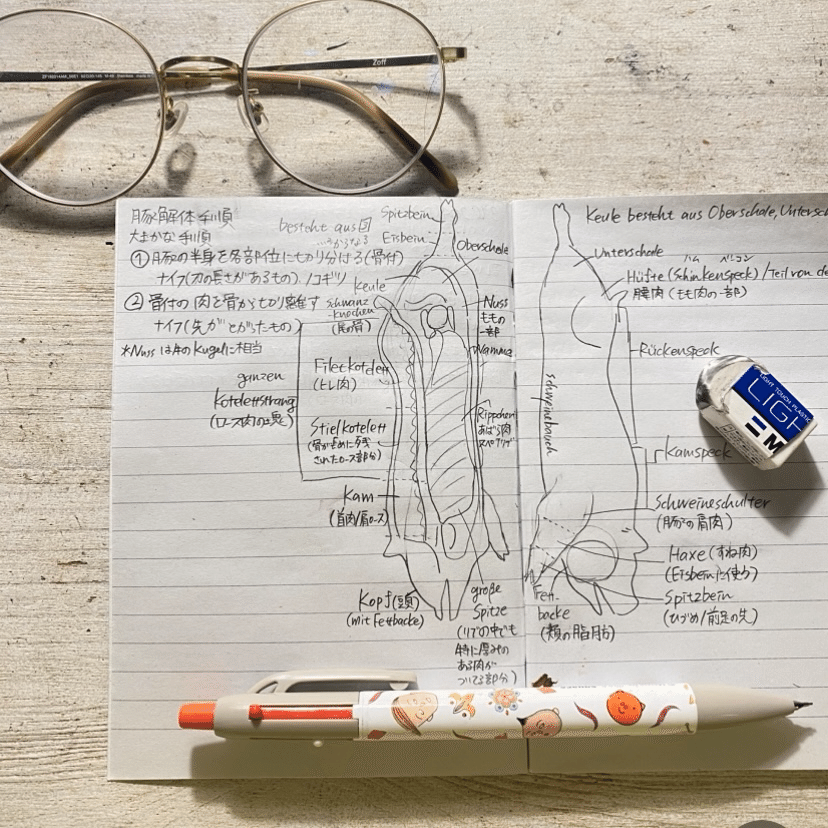 Zoff
豚解体手順
大まかな手順
①豚の半身を各部位に切り分ける(骨付)
ナイフ(刃の長さがあるもの)、ノコギリ
②骨付の肉を骨から切り離す
ナイフ(先がとがったもの)
*Nussは牛のKugelに相当
besteht aus
Spitzbein
Eisbein
Oberschale
Keule
schwanz
-knochen
(尾の骨)
Nuss
ももの
一部
Wamme
Filetkotelett
(ヒレ肉)
ganzen
Kotelettstrang
(ロース肉の塊)
Stielkotelett
(骨がために残
されたロース部分)
Rippchen
あばら肉
スペアリブ
Kam
(首肉/肩ロース)
Kopf(頭)
(mit Fettbacke)
große
Spitze
(リブの中でも
特に厚みの
ある肉が
ついてる部分)
Keule besteht aus Oberschale, Untersch
Unterschale
ハム ベーコン
Hüfte(Schinkenspeck)/Teil von de
腰肉(もも肉の一部)
Rückenspeck
schweinebauch
Kamspeck
Schweineschulter
(豚の肩肉)
Haxe(すね肉)
(Eisbeinに使う)
Spitzbein
(ひづめ/前足の先)
Fett-
backe
(頬の脂肪)
LIGHT TOUCH PLASTIC
LIGH
M